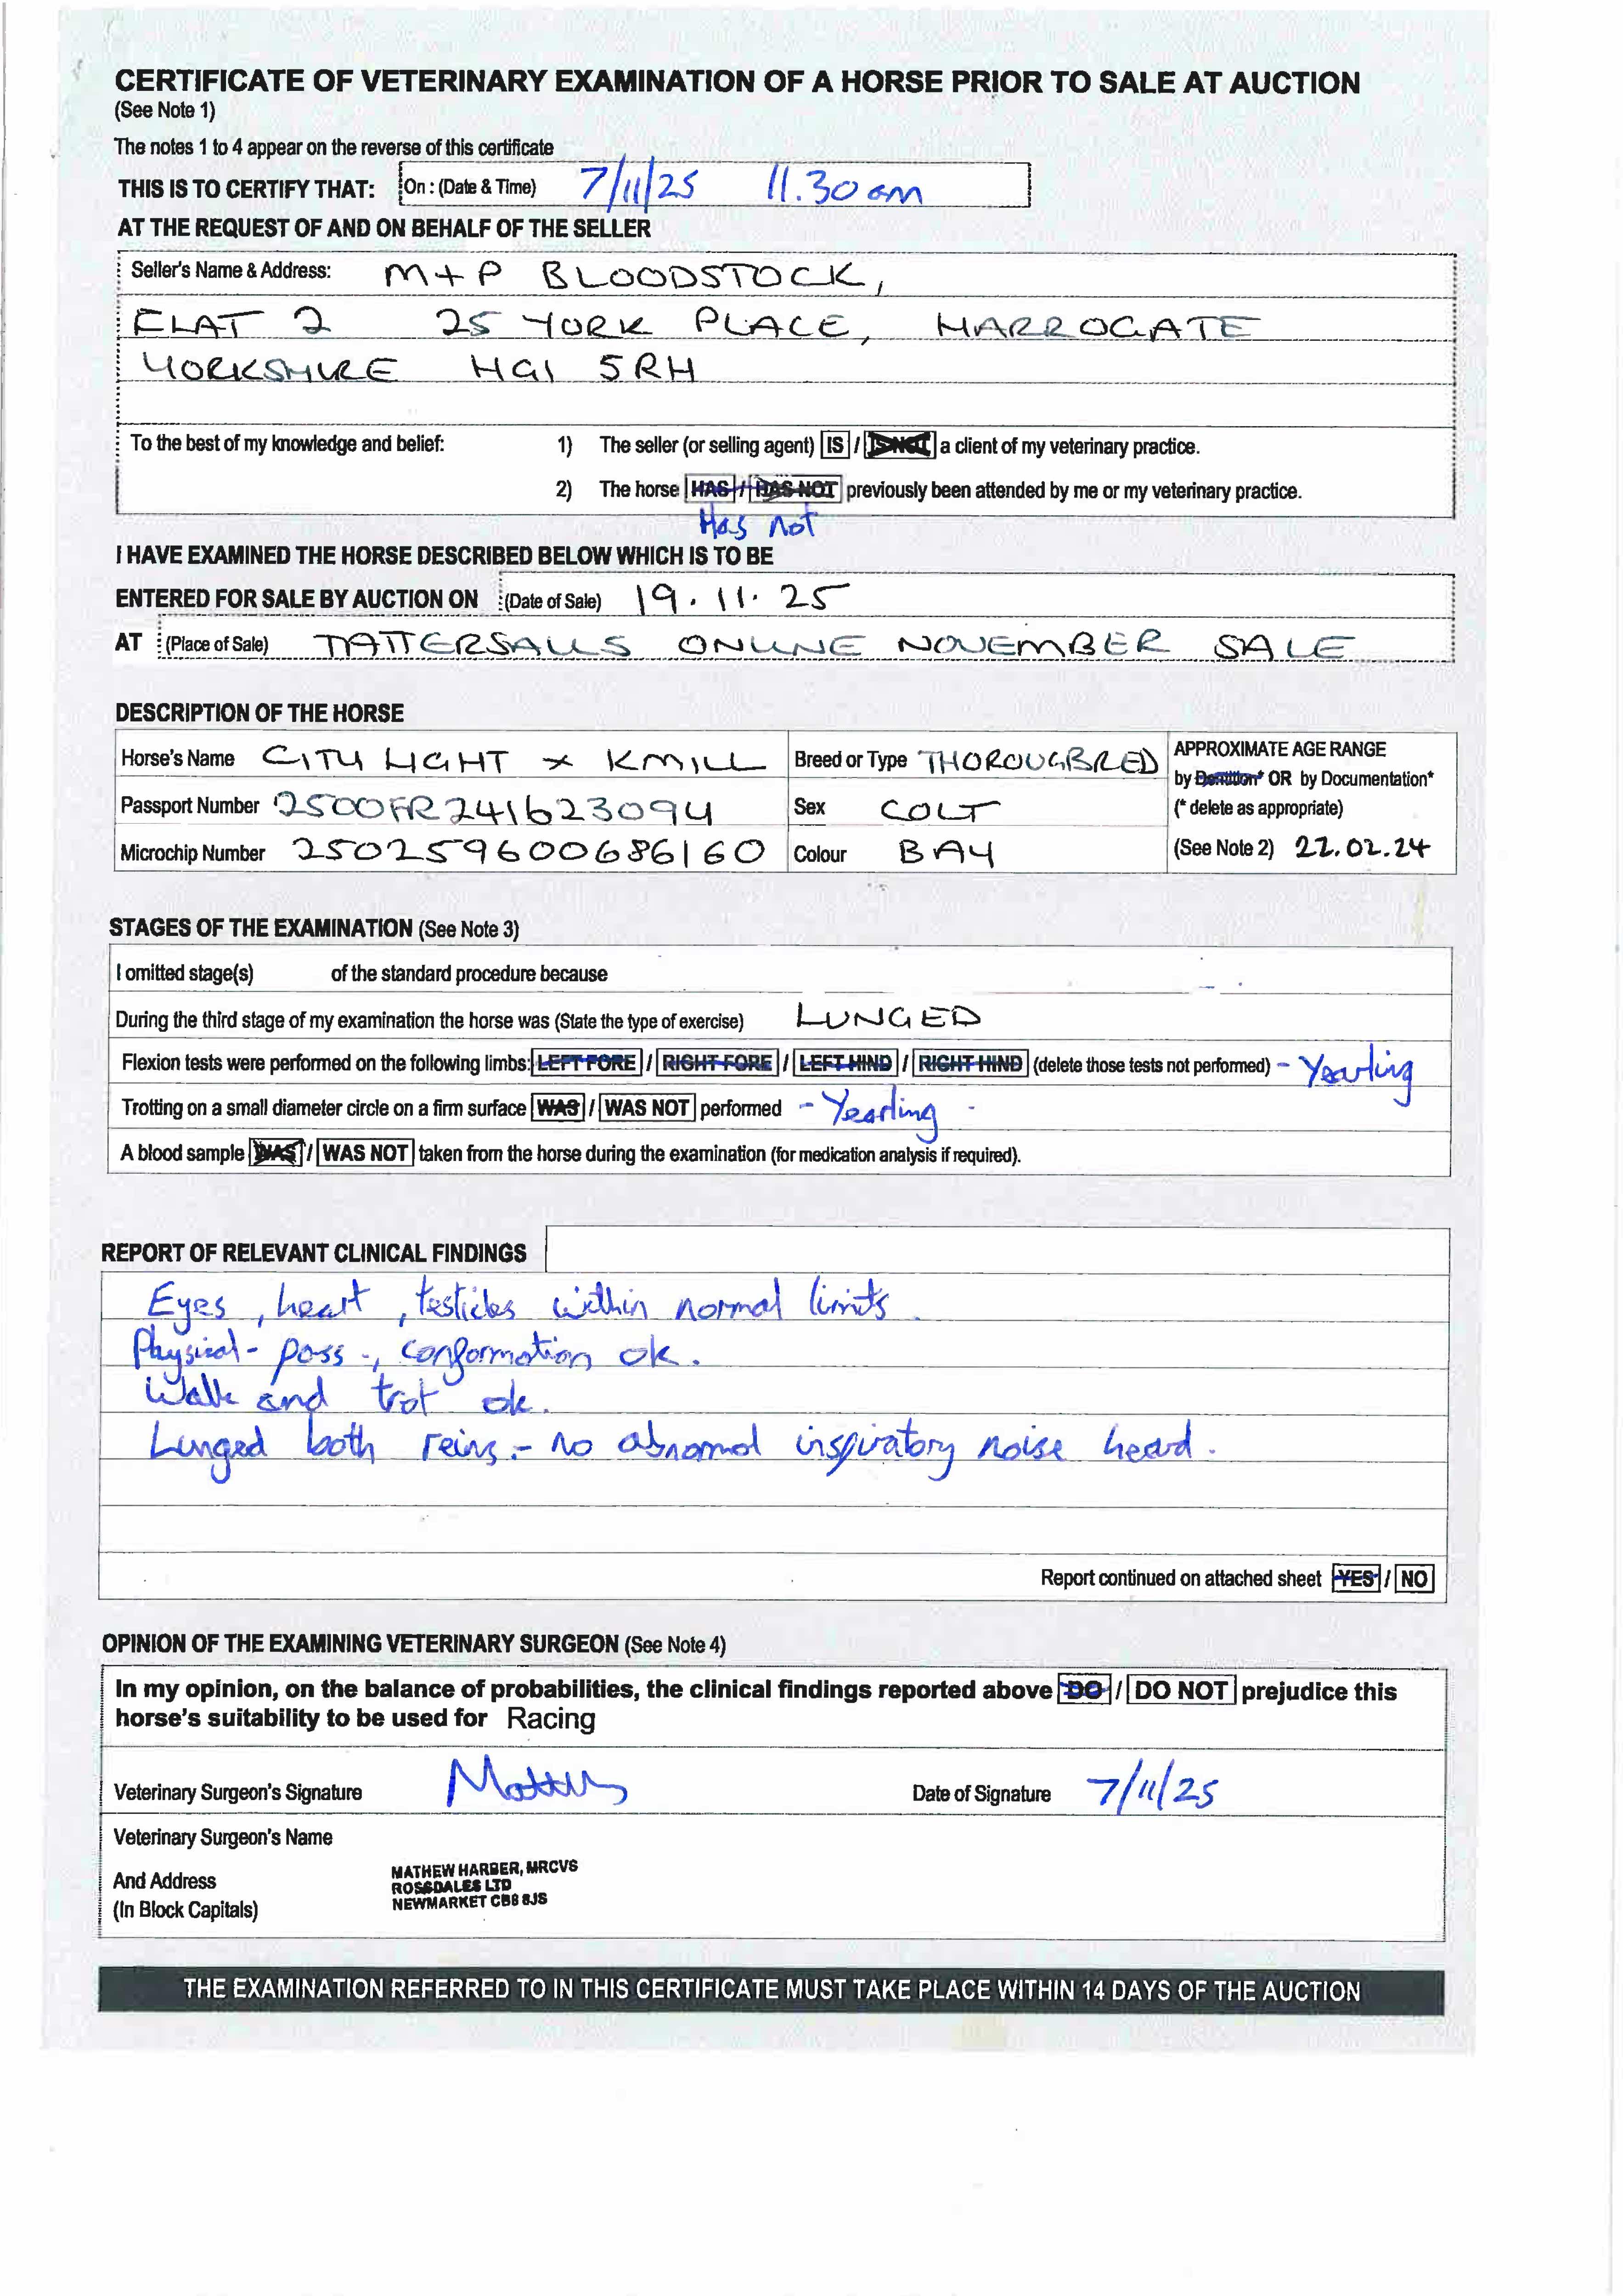 CERTIFICATE OF VETERINARY EXAMINATION OF A HORSE PRIOR TO SALE AT AUCTION
(See Note 1)
The notes 1 to 4 appear on the reverse of this certificate
THIS IS TO CERTIFY THAT: On : (Date & Time) 7/11/25 11.30 am
AT THE REQUEST OF AND ON BEHALF OF THE SELLER
Seller's Name & Address: M + P BLOODSTOCK,
FLAT 2 25 YORK PLACE, HARROGATE
YORKSHIRE HG1 5RH
To the best of my knowledge and belief: 1) The seller (or selling agent) IS / IS NOT a client of my veterinary practice.
2) The horse HAS / HAS NOT previously been attended by me or my veterinary practice.
Has not
I HAVE EXAMINED THE HORSE DESCRIBED BELOW WHICH IS TO BE
ENTERED FOR SALE BY AUCTION ON (Date of Sale) 19.11.25
AT (Place of Sale) TATTERSALLS ONLINE NOVEMBER SALE
DESCRIPTION OF THE HORSE
Horse's Name CITY LIGHT x KMILL Breed or Type THOROUGBRED APPROXIMATE AGE RANGE
by Dentition* OR by Documentation*
Passport Number 2500FR241623094 Sex COLT (* delete as appropriate)
Microchip Number 250259600686160 Colour BAY (See Note 2) 22.02.24
STAGES OF THE EXAMINATION (See Note 3)
I omitted stage(s) of the standard procedure because
During the third stage of my examination the horse was (State the type of exercise) LUNGED
Flexion tests were performed on the following limbs: LEFT FORE / RIGHT FORE / LEFT HIND / RIGHT HIND (delete those tests not performed) - Yearling
Trotting on a small diameter circle on a firm surface WAS / WAS NOT performed - Yearling
A blood sample WAS / WAS NOT taken from the horse during the examination (for medication analysis if required).
REPORT OF RELEVANT CLINICAL FINDINGS
Eyes, heart, testicles within normal limits.
Physical - pass -, conformation ok.
Walk and trot ok.
Lunged both reins - no abnormal inspiratory noise heard.
Report continued on attached sheet YES / NO
OPINION OF THE EXAMINING VETERINARY SURGEON (See Note 4)
In my opinion, on the balance of probabilities, the clinical findings reported above DO / DO NOT prejudice this
horse's suitability to be used for Racing
Veterinary Surgeon's Signature Date of Signature 7/11/25
Veterinary Surgeon's Name
And Address
(In Block Capitals)
MATHEW HARBER, MRCVS
ROSSDALES LTD
NEWMARKET CB8 8JS
THE EXAMINATION REFERRED TO IN THIS CERTIFICATE MUST TAKE PLACE WITHIN 14 DAYS OF THE AUCTION